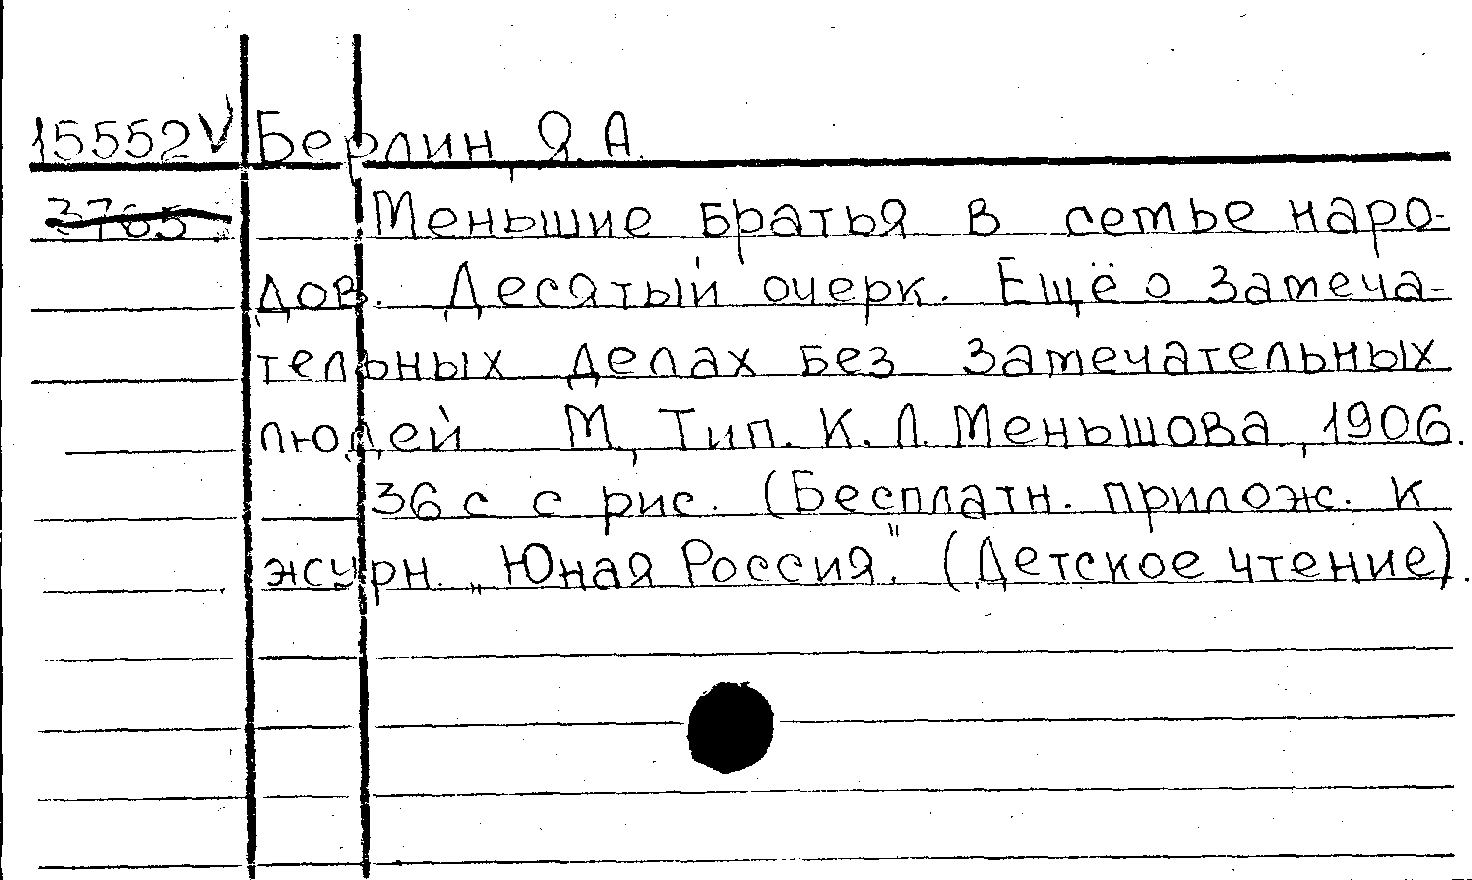 15552V Берлин, Я. А.
3765 Меньшие братья в семье наро-
дов. Десятый очерк. Ещё о замеча-
тельных делах без замечательных
людей М, Тип. К. Л. Меньшова, 1906.
36 с с рис. (Бесплатн. прилож. к
журн. „Юная Россия." (Детское чтение).